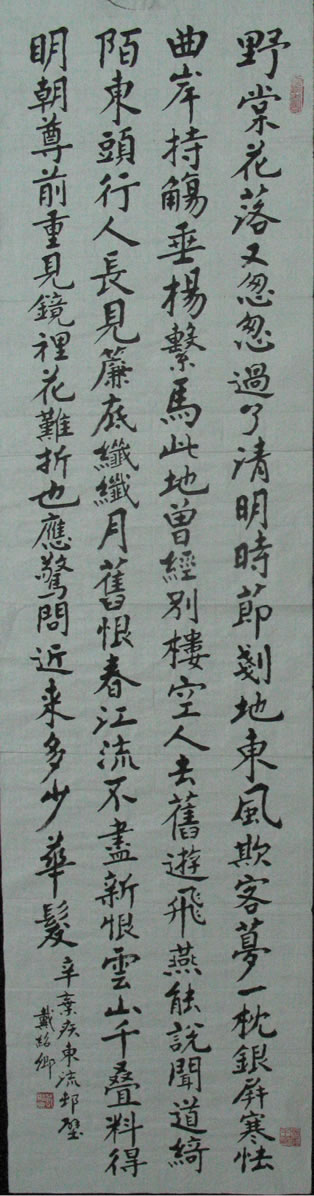 野棠花落又匆匆過了清明時節剗地東風欺客夢一枕銀屏寒怯
曲岸持觴垂楊繫馬此地曾經別樓空人去舊遊飛燕能說聞道綺
陌東頭行人長見簾底纖纖月舊恨春江流不盡新恨雲山千叠料得
明朝尊前重見鏡裡花難折也應驚問近來多少華髮
辛棄疾東流邨壁
戴紹鄉